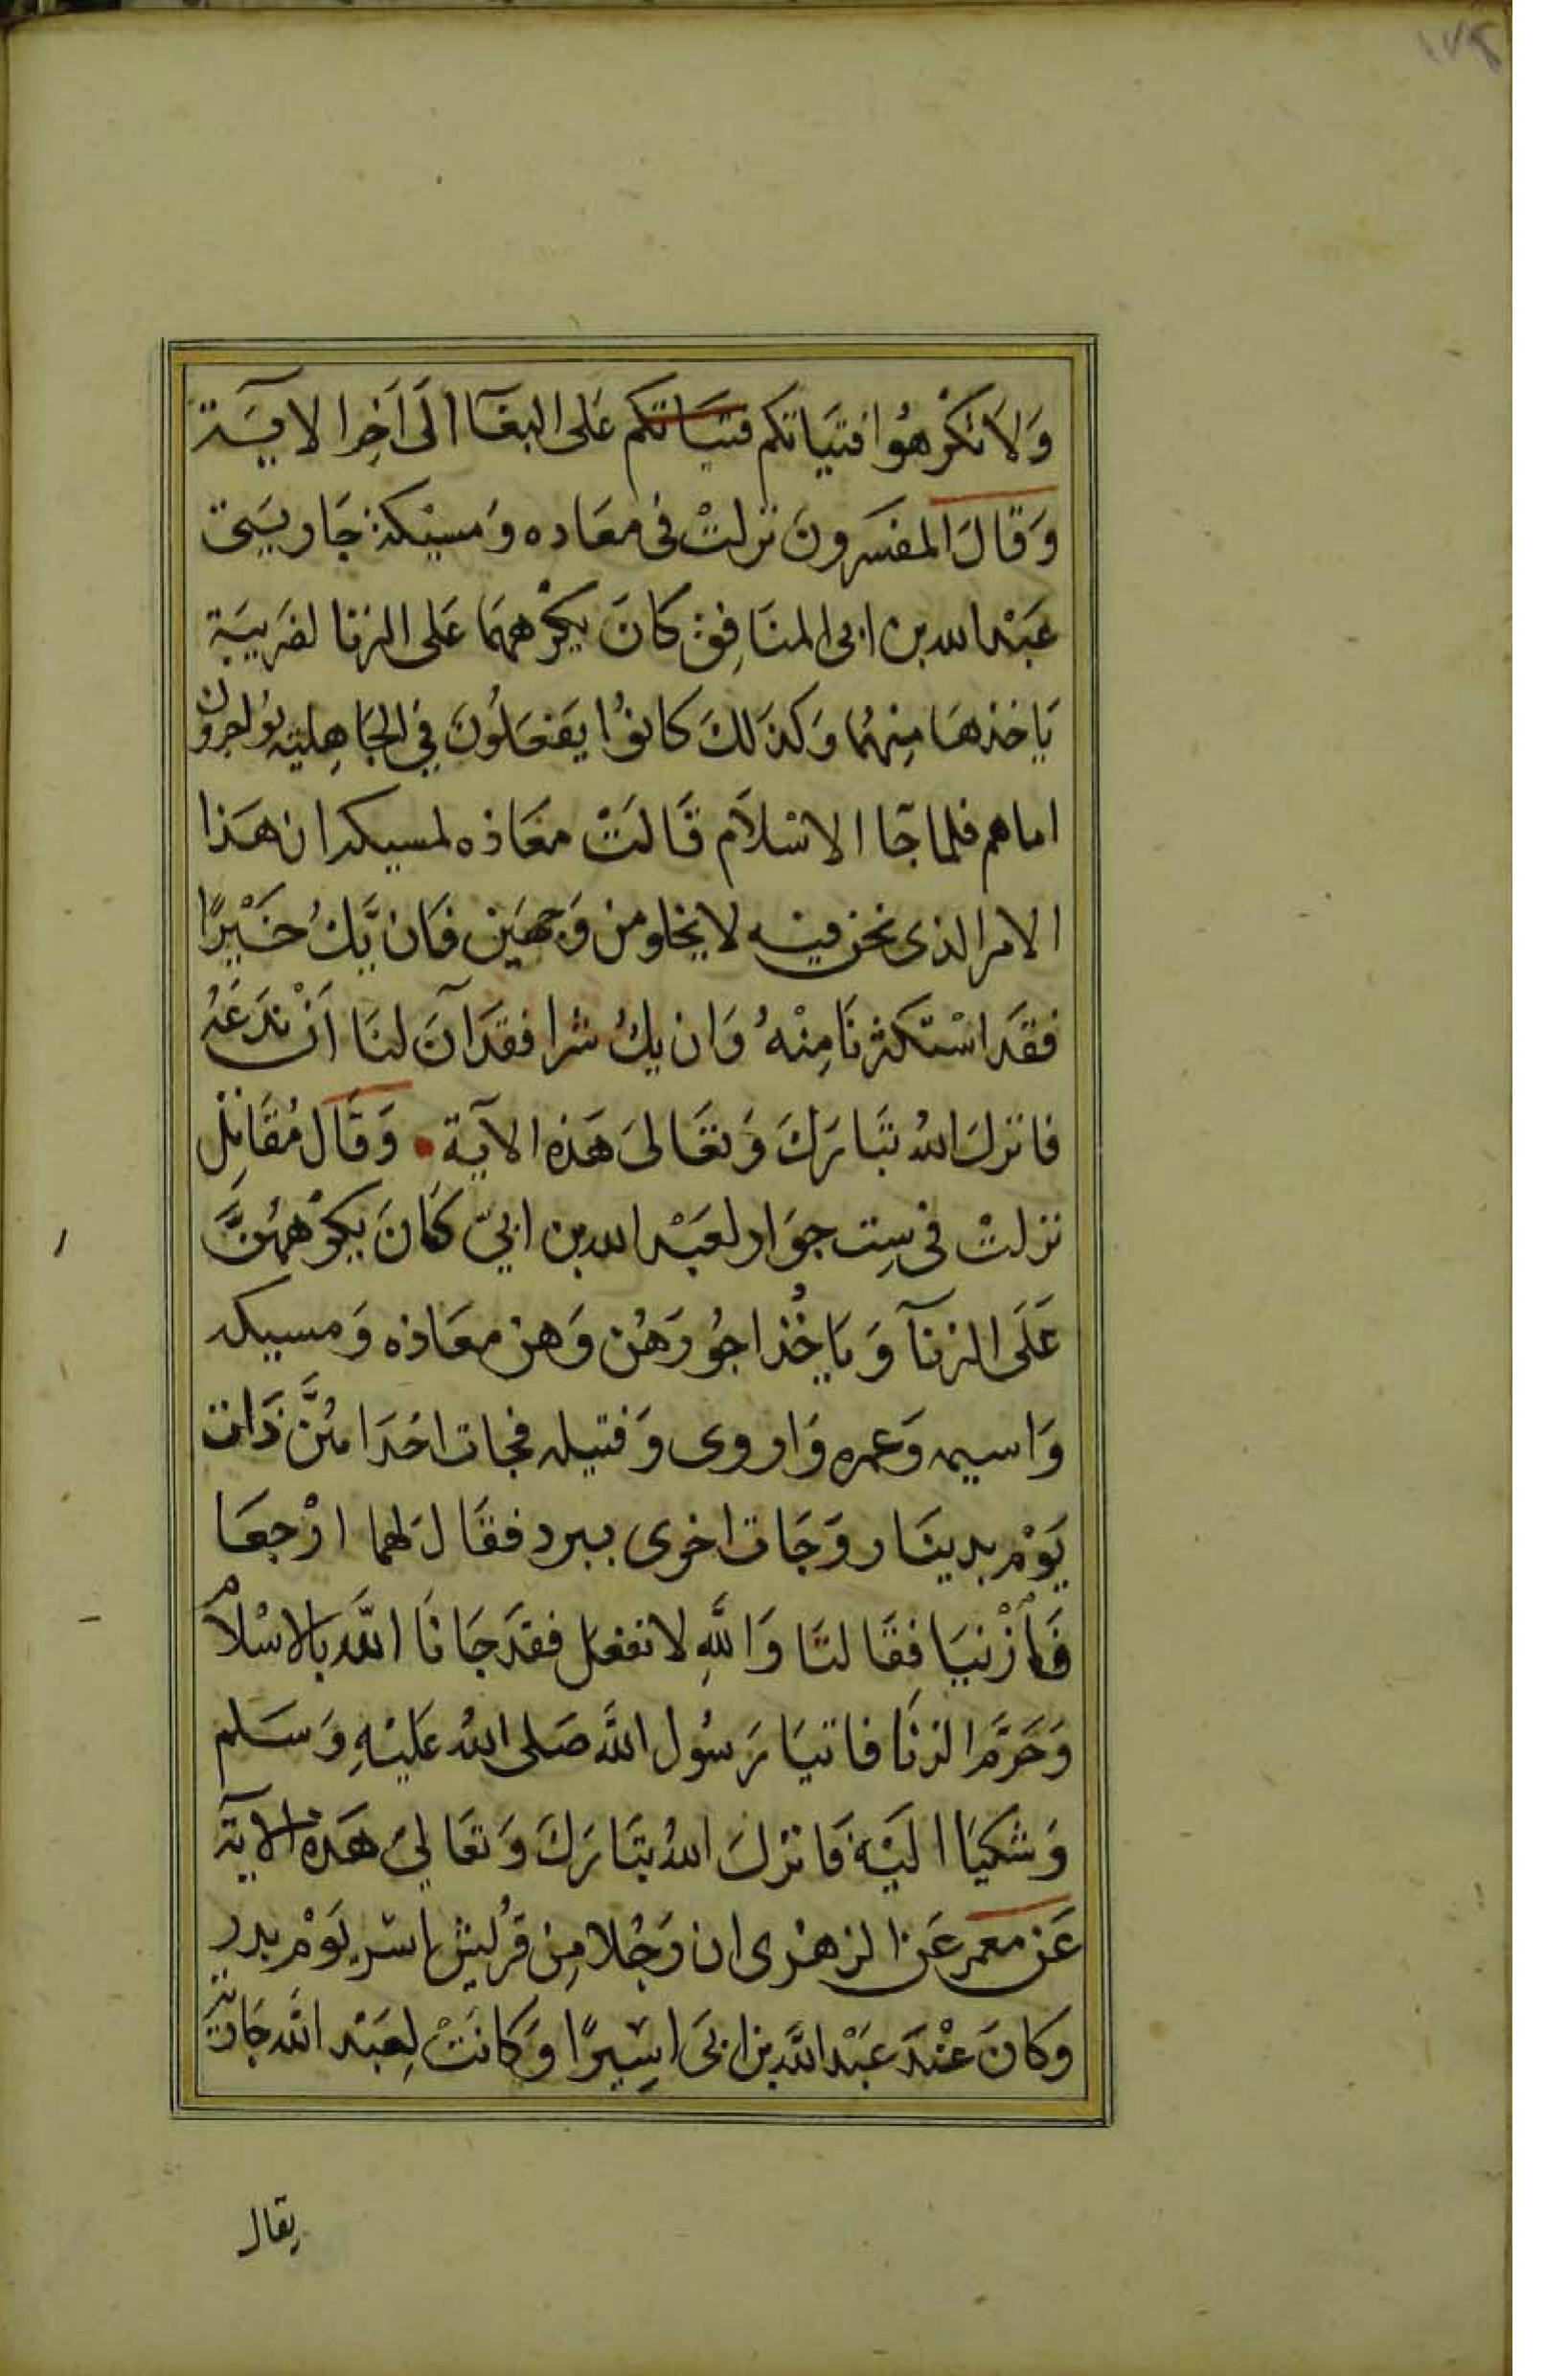 ١٧٤
وَلَا تُكْرِهُوا فتيَاتكم فتيَاتكم عَلى البغآا الَى اَخِرا الايَــة
وَقَالَ المفسَرونَ نزلتْ فى معَاده وَمسيْكة جَاريَـتى
عَبْد الله بن ابى المنَافِق كَانَ يكْرههمَا عَلى الزنا لضَرِيبَة
يَاخذهَا مِنهُما وَكذَلكَ كانوُا يَفعَلُونَ فِي الجَاهِلية يُواجرون
اماهم فلما جَآ الاسْلاَم قَالَتْ معَاذه لمسيكه ان هَذا
الامر الذى نحن فيه لا يخلو من وَجهَين فَان يَّكُ خَيْرًا
فقَد اسْتكثرنَا مِنْهُ وَان يكُ شرا فقَد آنَ لنَا اَنْ نَدَعَهُ
فانزلَ اللهُ تبَارَكَ وَتعَالىَ هَذه الآيَة • وَقَالَ مُقَاتِل
نزلتْ فى سِت جوَار لعَبْد الله بن ابيّ كَانَ يكرْههُنَّ
عَلَى الزنآ وَيَاخُذ اجُورَهُن وَهن معَاذه وَمسيكه
وَاسيمه وَعمره وَاروى وَقتيله فجات احَدَاهُنَّ ذَات
يَوْم بدينَار وَجَات اخرى ببرد فقَالَ لهما ارْجعَا
فَازْنيَا فقَالتَا وَاللّهِ لا نفعَل فقَد جَانَا اللّه بالاسْلام
وَحَرَّمَ الزنَا فاتيَا رَسُول اللّه صَلى اللهُ عَليْهِ وَسَلم
وَشكيَا اليَه فَانْزلَ اللهُ تبَارَكَ وَتعَالىَ هَذه الآية
عَن معمر عَن الزهْرى ان رَجُلا مِن قرُيش اُسر يَوْم بدر
وَكانَ عنْدَ عَبْد اللّه بن ابَى اسِيرًا وَكانَتْ لِعَبْد اللّه جَارية
يقال